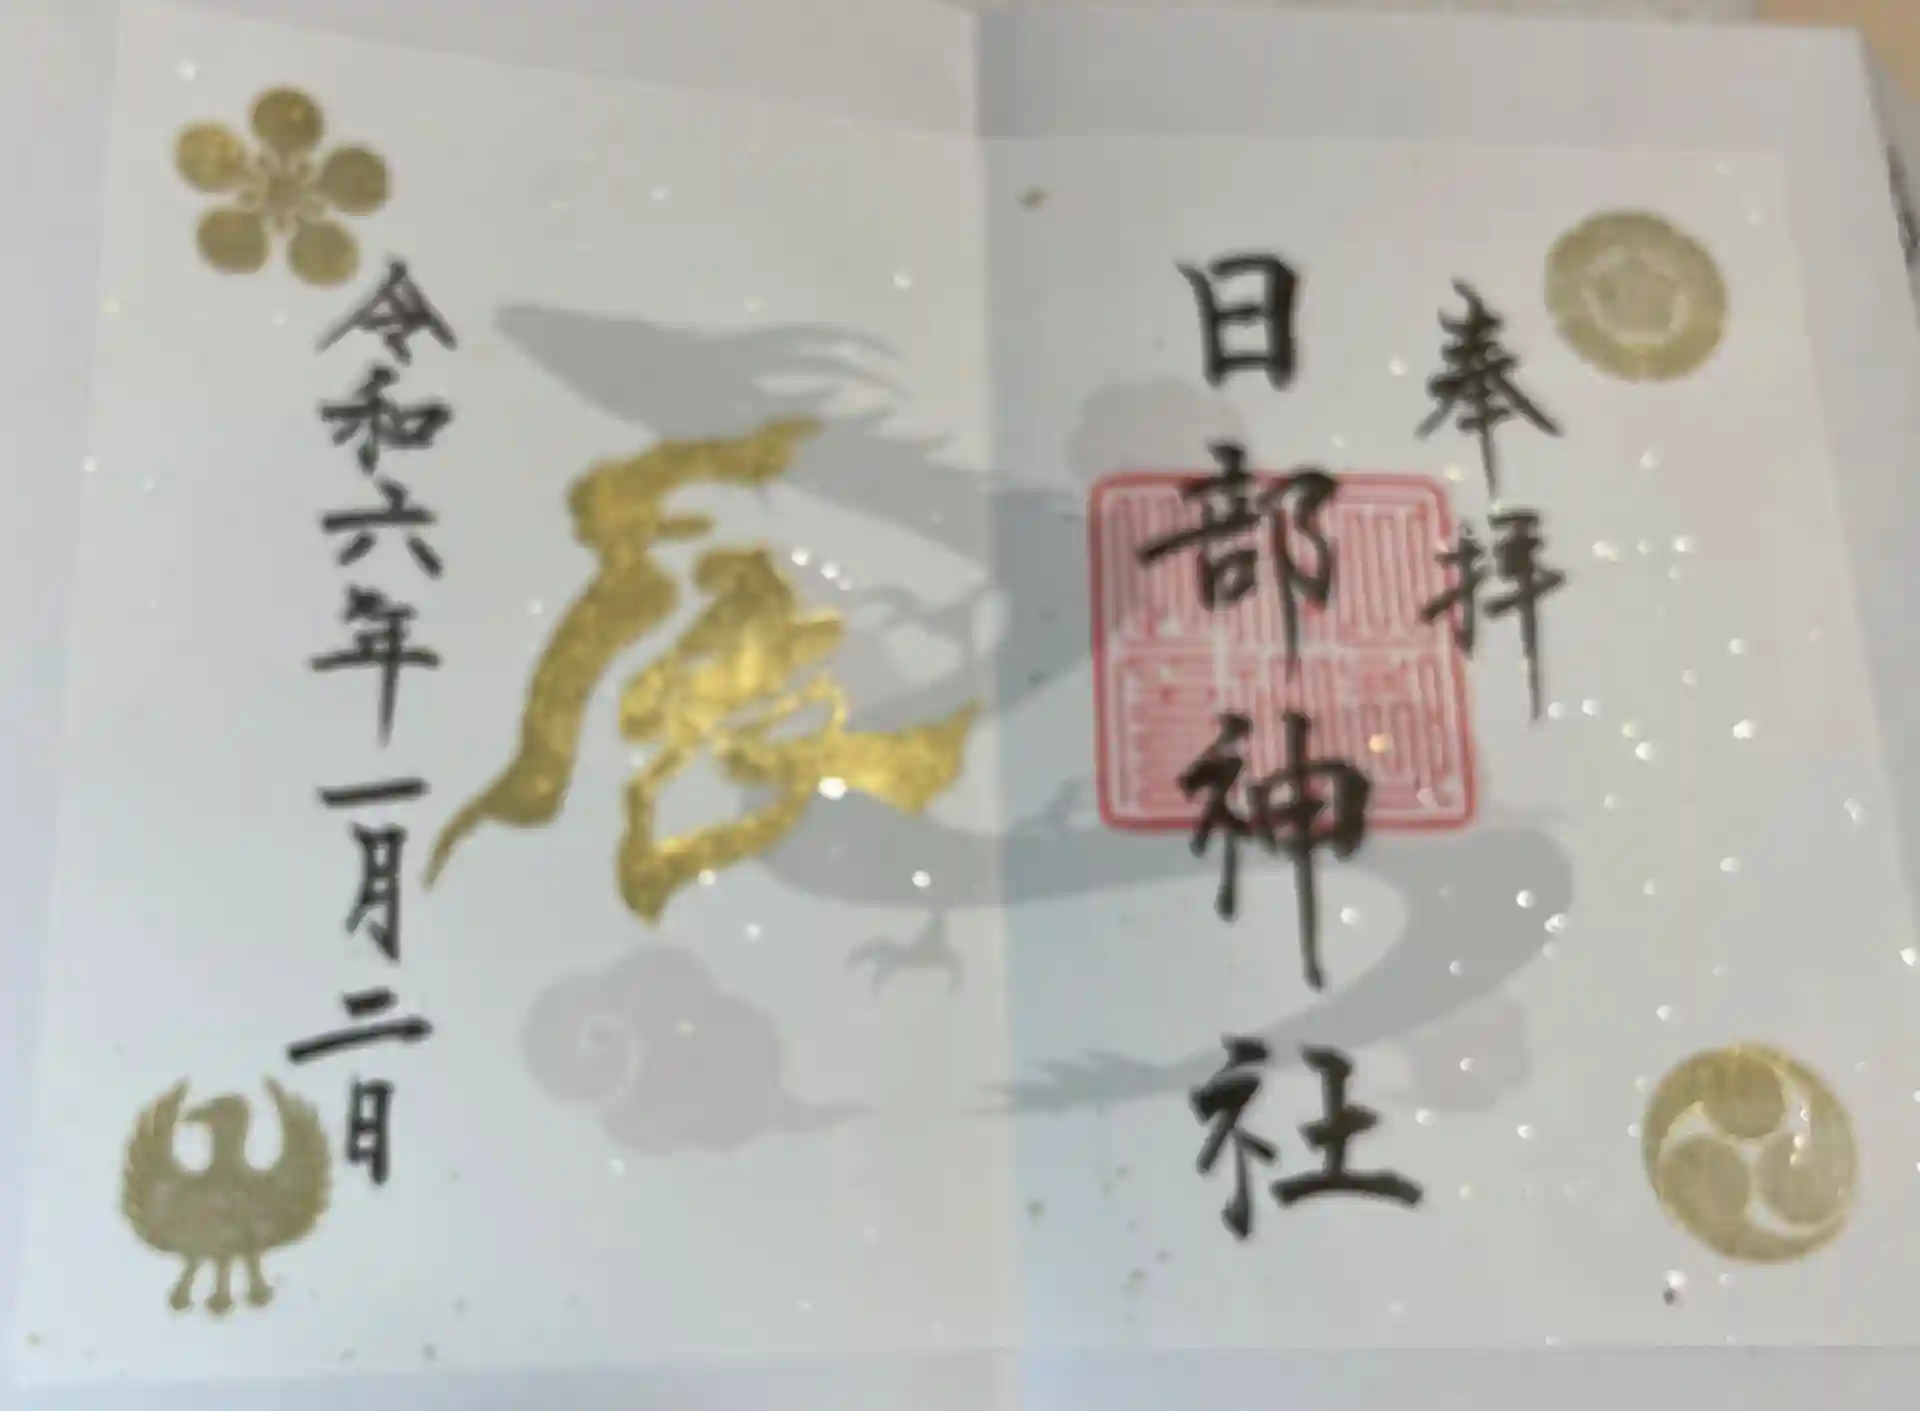 奉拝
日部神社
辰
令和六年一月二日